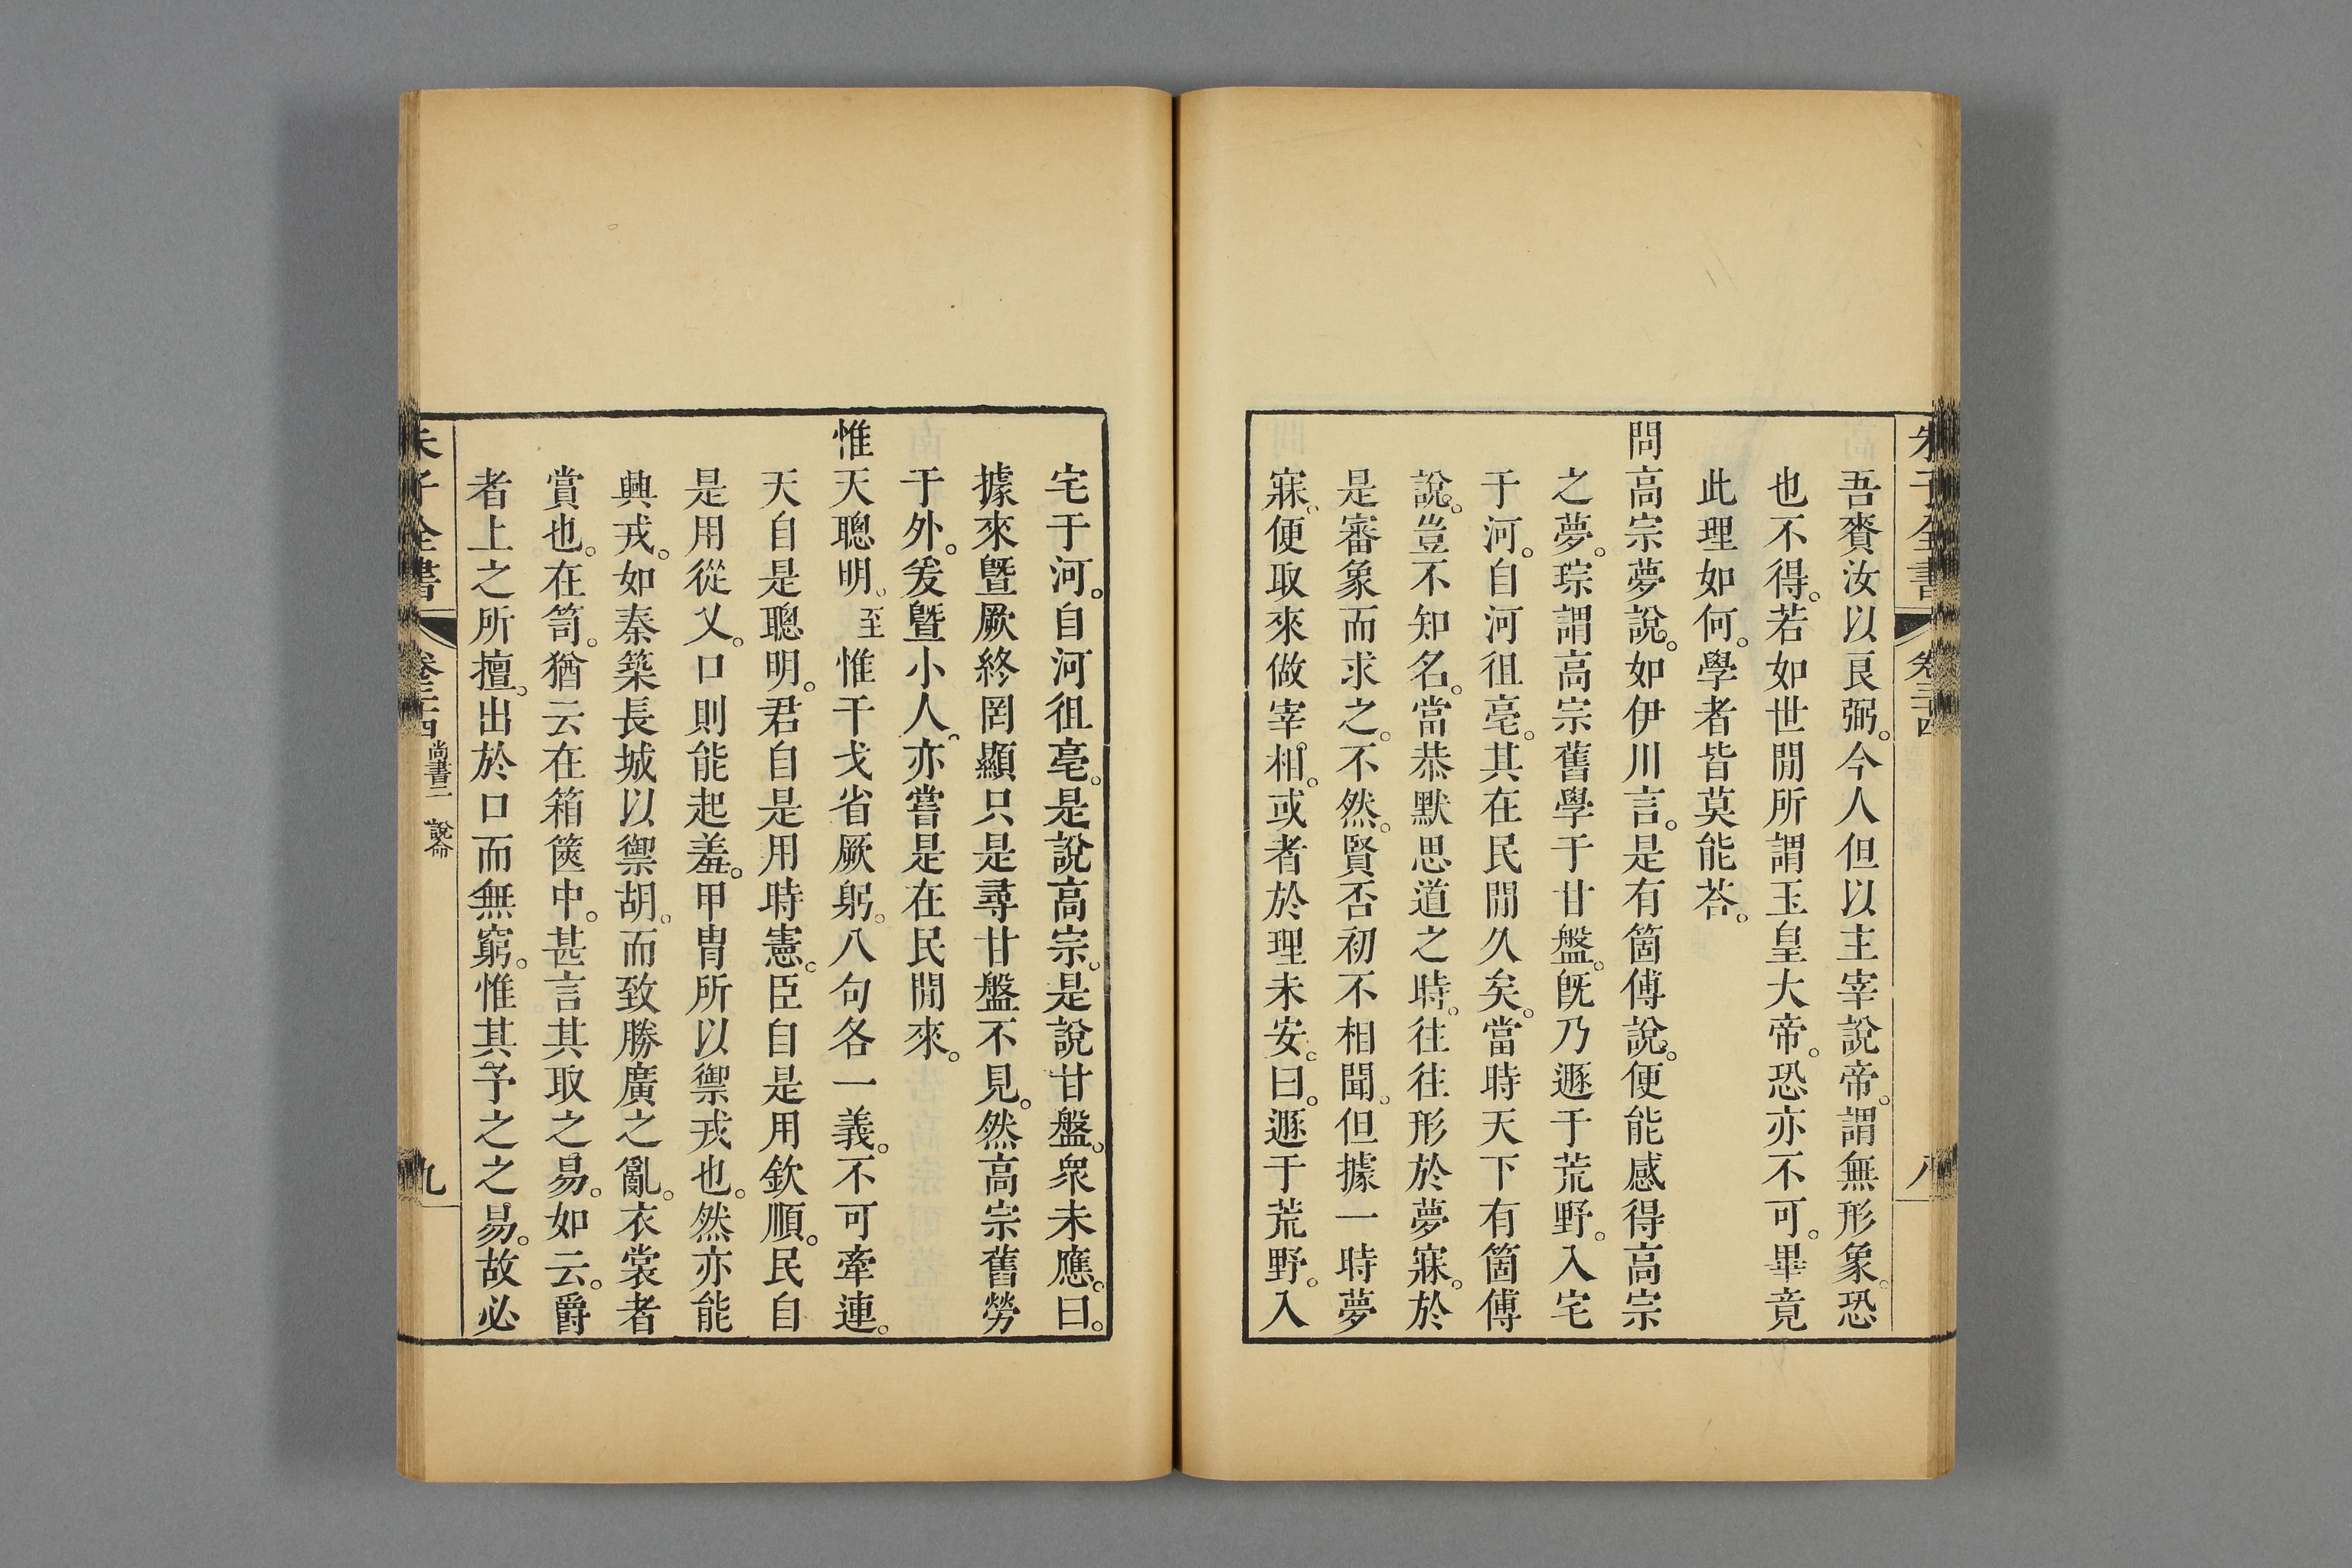 朱子全書 卷三十四 八
吾賚汝以良弼。今人但以主宰說帝。謂無形象。恐
也不得。若如世閒所謂玉皇大帝。恐亦不可。畢竟
此理如何。學者皆莫能荅。
問高宗夢說。如伊川言。是有箇傅說。便能感得高宗
之夢。琮謂高宗舊學于甘盤。旣乃遯于荒野。入宅
于河。自河徂亳。其在民閒久矣。當時天下有箇傅
說。豈不知名。當恭默思道之時。往往形於夢寐。於
是審象而求之。不然。賢否初不相聞。但據一時夢
寐。便取來做宰相。或者於理未安。曰。遯于荒野。入
宅于河。自河徂亳。是說高宗。是說甘盤。衆未應。曰。
據來曁厥終罔顯只是尋甘盤不見。然高宗舊勞
于外。爰曁小人。亦嘗是在民閒來。
惟天聰明。至惟干戈省厥躬。八句各一義。不可牽連。
天自是聰明。君自是用時憲。臣自是用欽順。民自
是用從乂。口則能起羞。甲胄所以禦戎也。然亦能
興戎。如秦築長城以禦胡。而致勝廣之亂。衣裳者
賞也。在笥。猶云在箱篋中。甚言其取之易。如云。爵
者上之所擅。出於口而無窮。惟其予之之易。故必
朱子全書 卷三十四 尚書二 說命 九